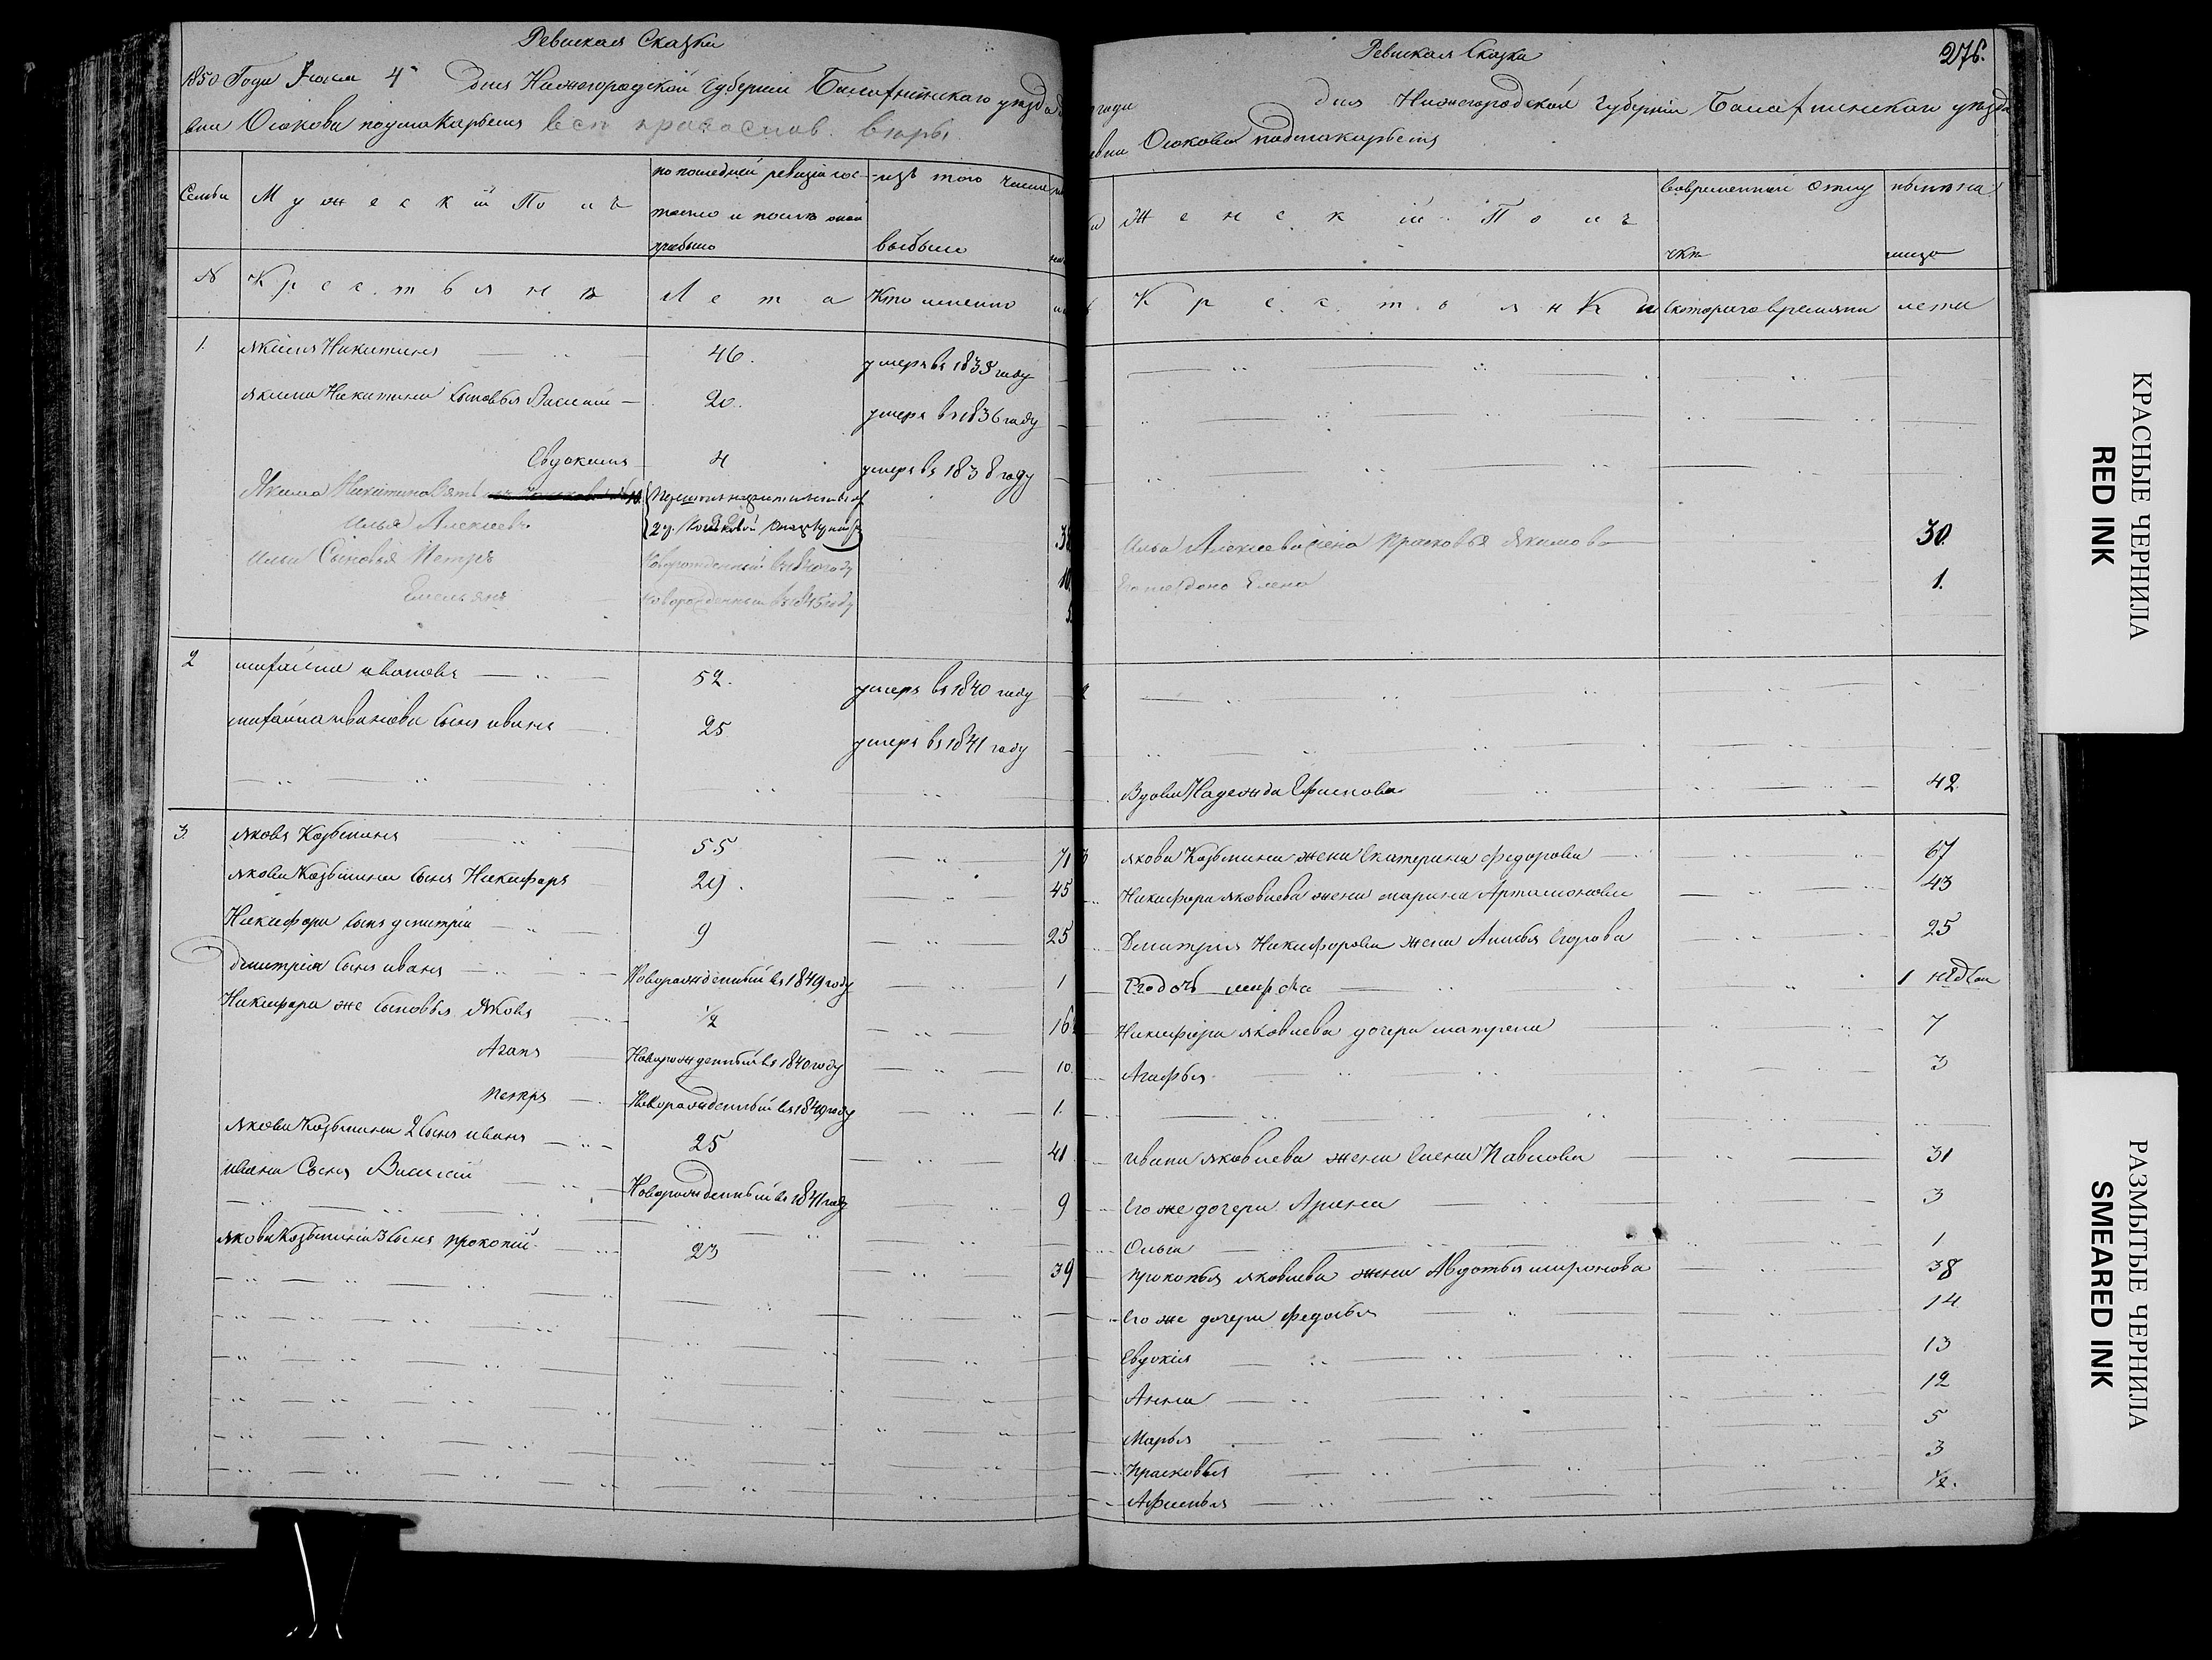 Ревиская Сказка
1850 Года Июля 4 дня Нижегородской Губернии Балахнинскаго уезда
вни Осокова подмакарьемъ всп православ. веры
Семьи
Мужеский Полъ
по последней ревизіи сос-
тояло и после онои
прибыло
изъ того числа
выбыло
№
Крестьяне
Лета
Кто именно
1.
якимъ Никитинъ 46. умеръ въ 1835 году
якима Никитина сыновья Василий 20. умеръ въ 1836 году
Евдокимъ 4 умеръ въ 1838 году
Якима Никитина зять
Илья Алексеевъ
Ильи Сыновья Петръ Новорожденный въ 1840 году
Емельянъ новорожденный въ 1845 году
2
михайла ивановъ 52. умеръ въ 1840 году
михайла иванова сынъ иванъ 25 умеръ въ 1841 году
3.
яковъ Козьминъ 55 71
якова Козьмина сынъ Никифоръ 29. 45
Никифора сынъ дмитрій 9 25
дмитрія сынъ иванъ Новорожденный въ 1849 году 1
Никифора же сыновья Яковъ 1/2 16
Агапъ Новорожденный въ 1840 году 10.
петръ Новорожденный въ 1849 году 1.
якова Козьмина 2 сынъ иванъ 25 41
ивана Сынъ Василій Новорожденный въ 1841 году 9
якова Козьмина 3 сынъ прокопій 23 39
Ревиская Сказка
276.
года дня Нижегородской Губерніи Балахнинскаго уезда
вни Осокова подмакарьемъ
Женский Полъ
вовременной отлу
чке
ныне на
лицо
Крестьянки
скотораго времяни
лета
Илья Алексеева жена прасковья Якимова 30.
Елена 1.
Вдова Надежда Ефимова 42.
3
якова Козьмина жена Екатерина федорова 67
Никифора яковлева жена марина Артамонова 43
Дмитрия Никифорова жена Анисья Егорова 25
Его дочь 1 недели
Никифора яковлева дочери матрена 7
Агафья 3
ивана яковлева жена Елена Павлова 31
Его же дочери Арина 3
Ольга 1
прокопья яковлева жена Авдотья миронова 38
Его же дочери федосья 14
Евдокія 13
Анна 12
Марья 5
прасковья 3
Афимья 1/2.
КРАСНЫЕ ЧЕРНИЛА
RED INK
РАЗМЫТЫЕ ЧЕРНИЛА
SMEARED INK